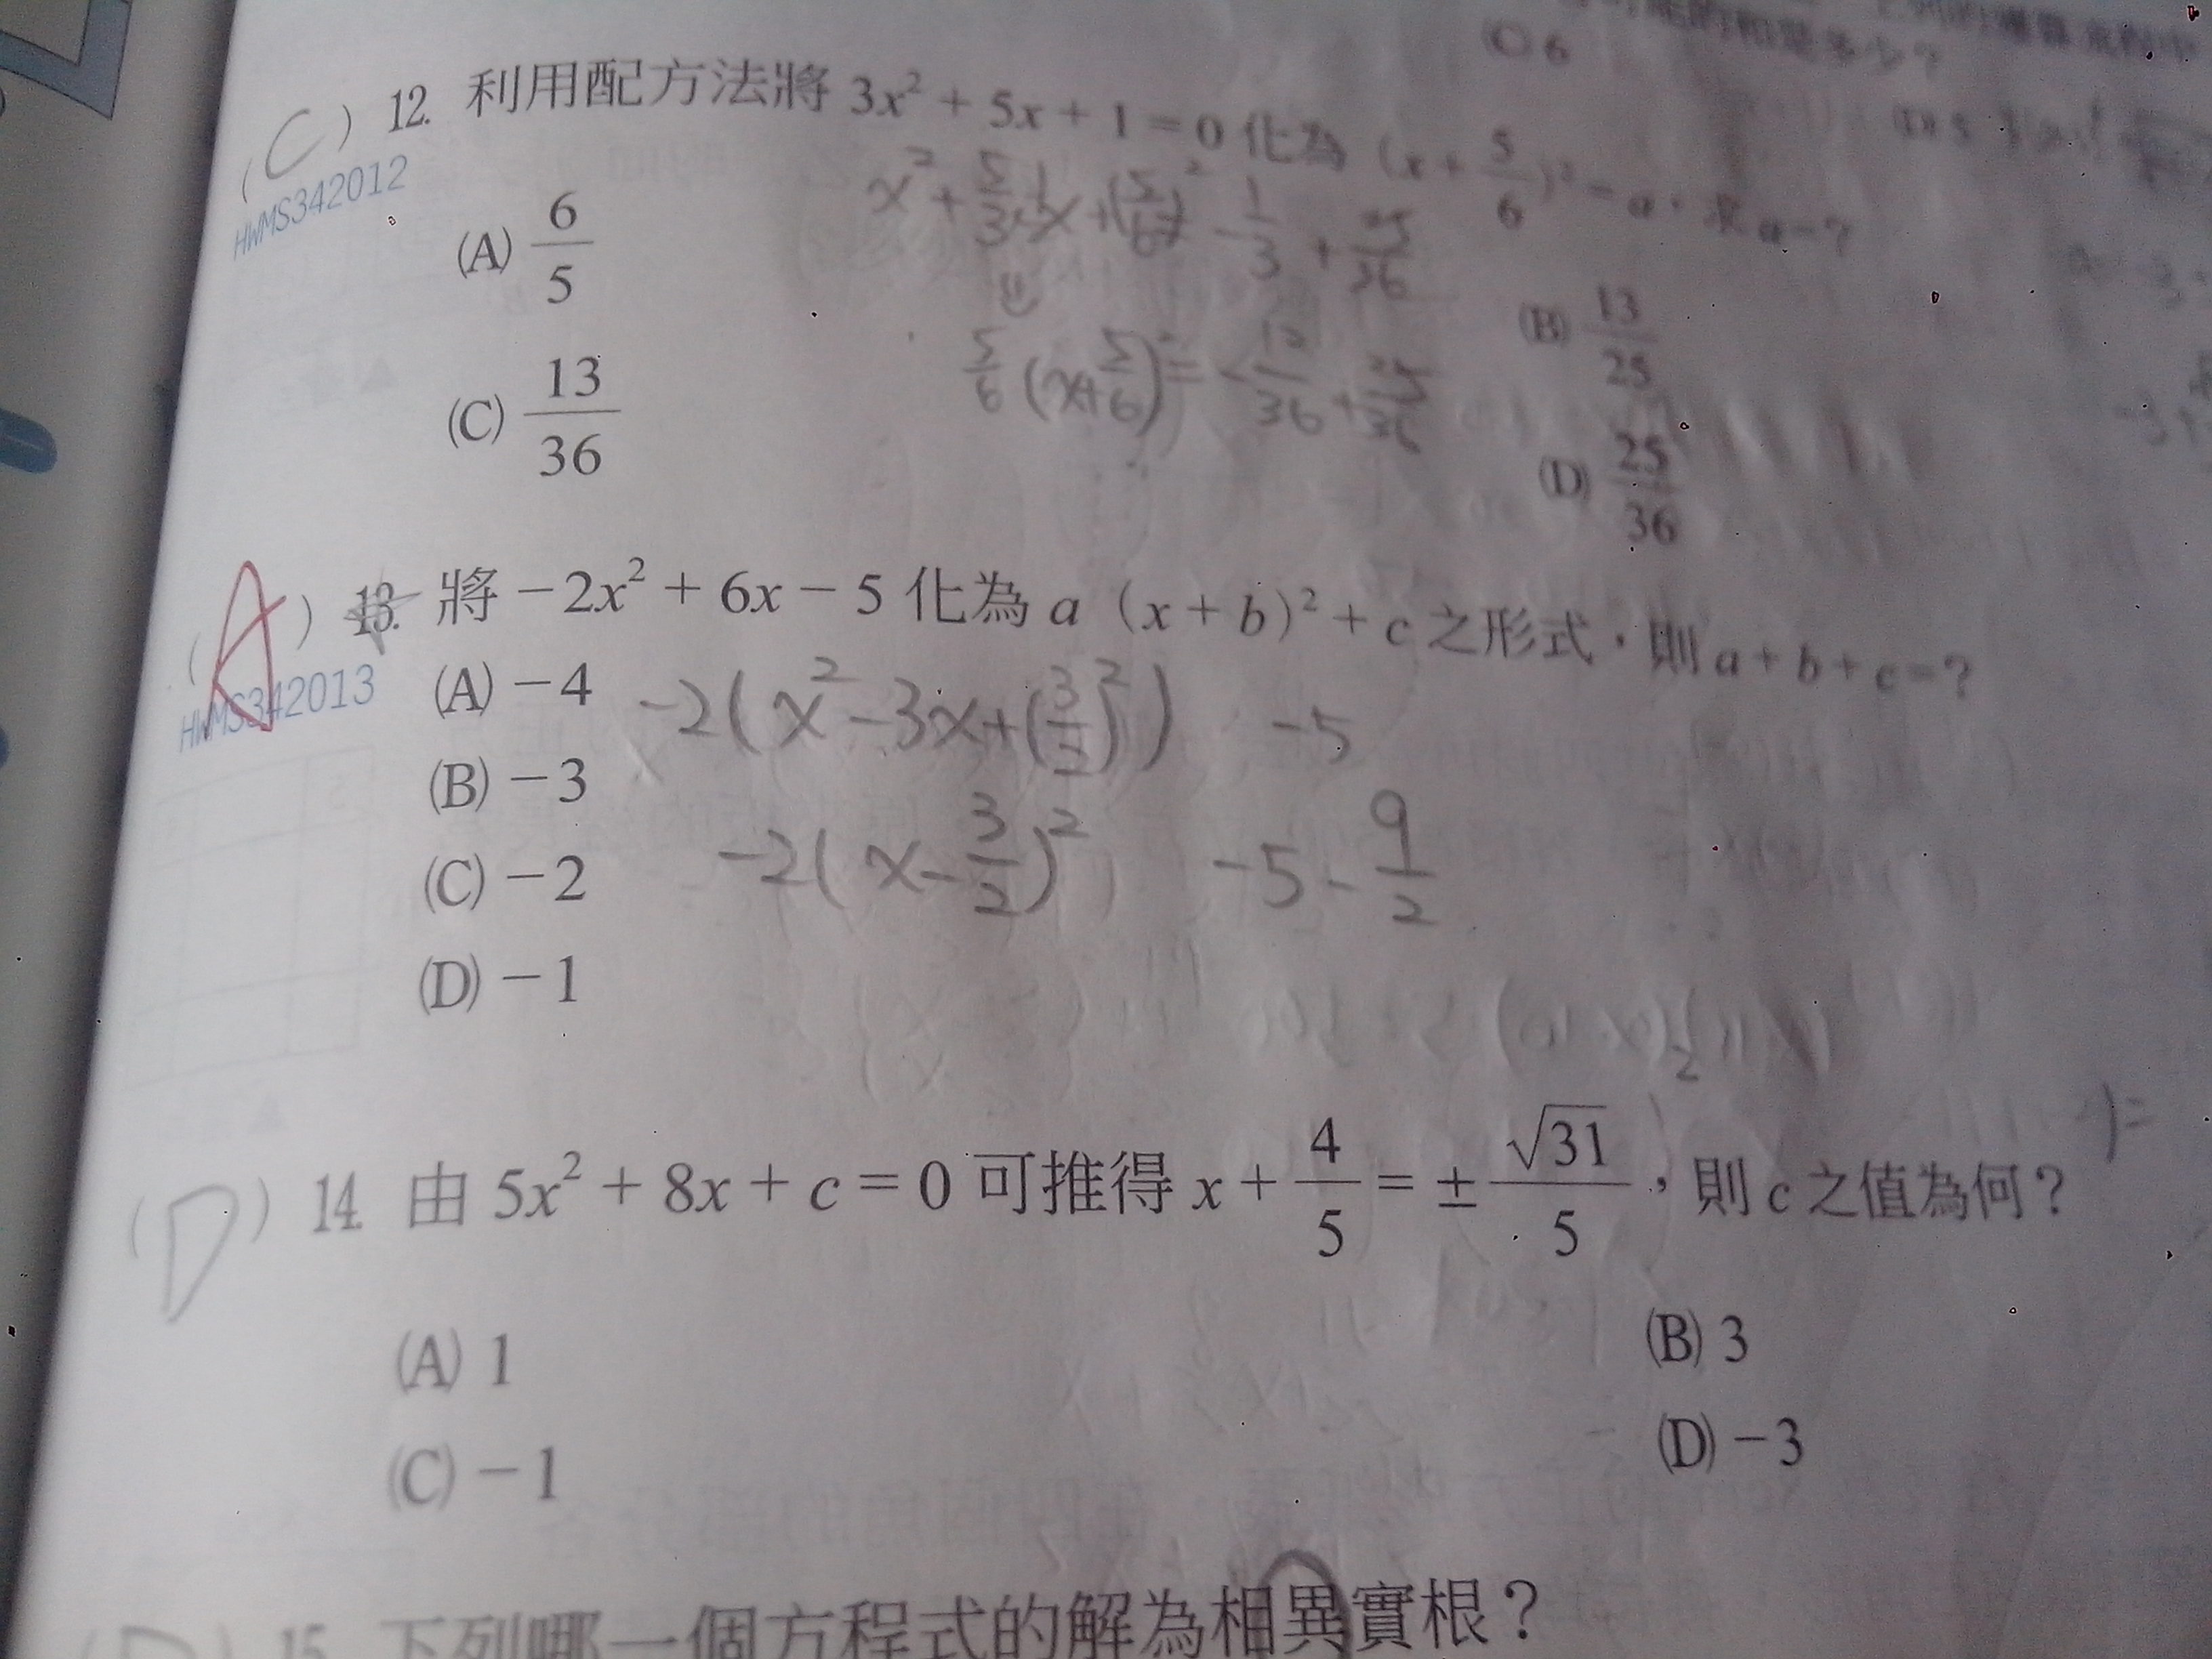 (C) 12. 利用配方法將 3x² + 5x + 1 = 0 化為 (x + 5/6)² = a，求 a = ?
HWMS342012
(A) 6/5
(B) 13/25
(C) 13/36
(D) 25/36
- 1/3 + 25/36
5/6 (x + 5/6)² = - 12/36 + 25/36
(A) 13. 將 -2x² + 6x - 5 化為 a (x + b)² + c 之形式，則 a + b + c = ?
HWMS342013
(A) -4
-2(x² - 3x + (3/2)²) -5
(B) -3
-2(x - 3/2)² -5 - 9/2
(C) -2
(D) -1
(D) 14. 由 5x² + 8x + c = 0 可推得 x + 4/5 = ± √31/5，則 c 之值為何？
(A) 1
(B) 3
(C) -1
(D) -3
(D) 15. 下列哪一個方程式的解為相異實根？